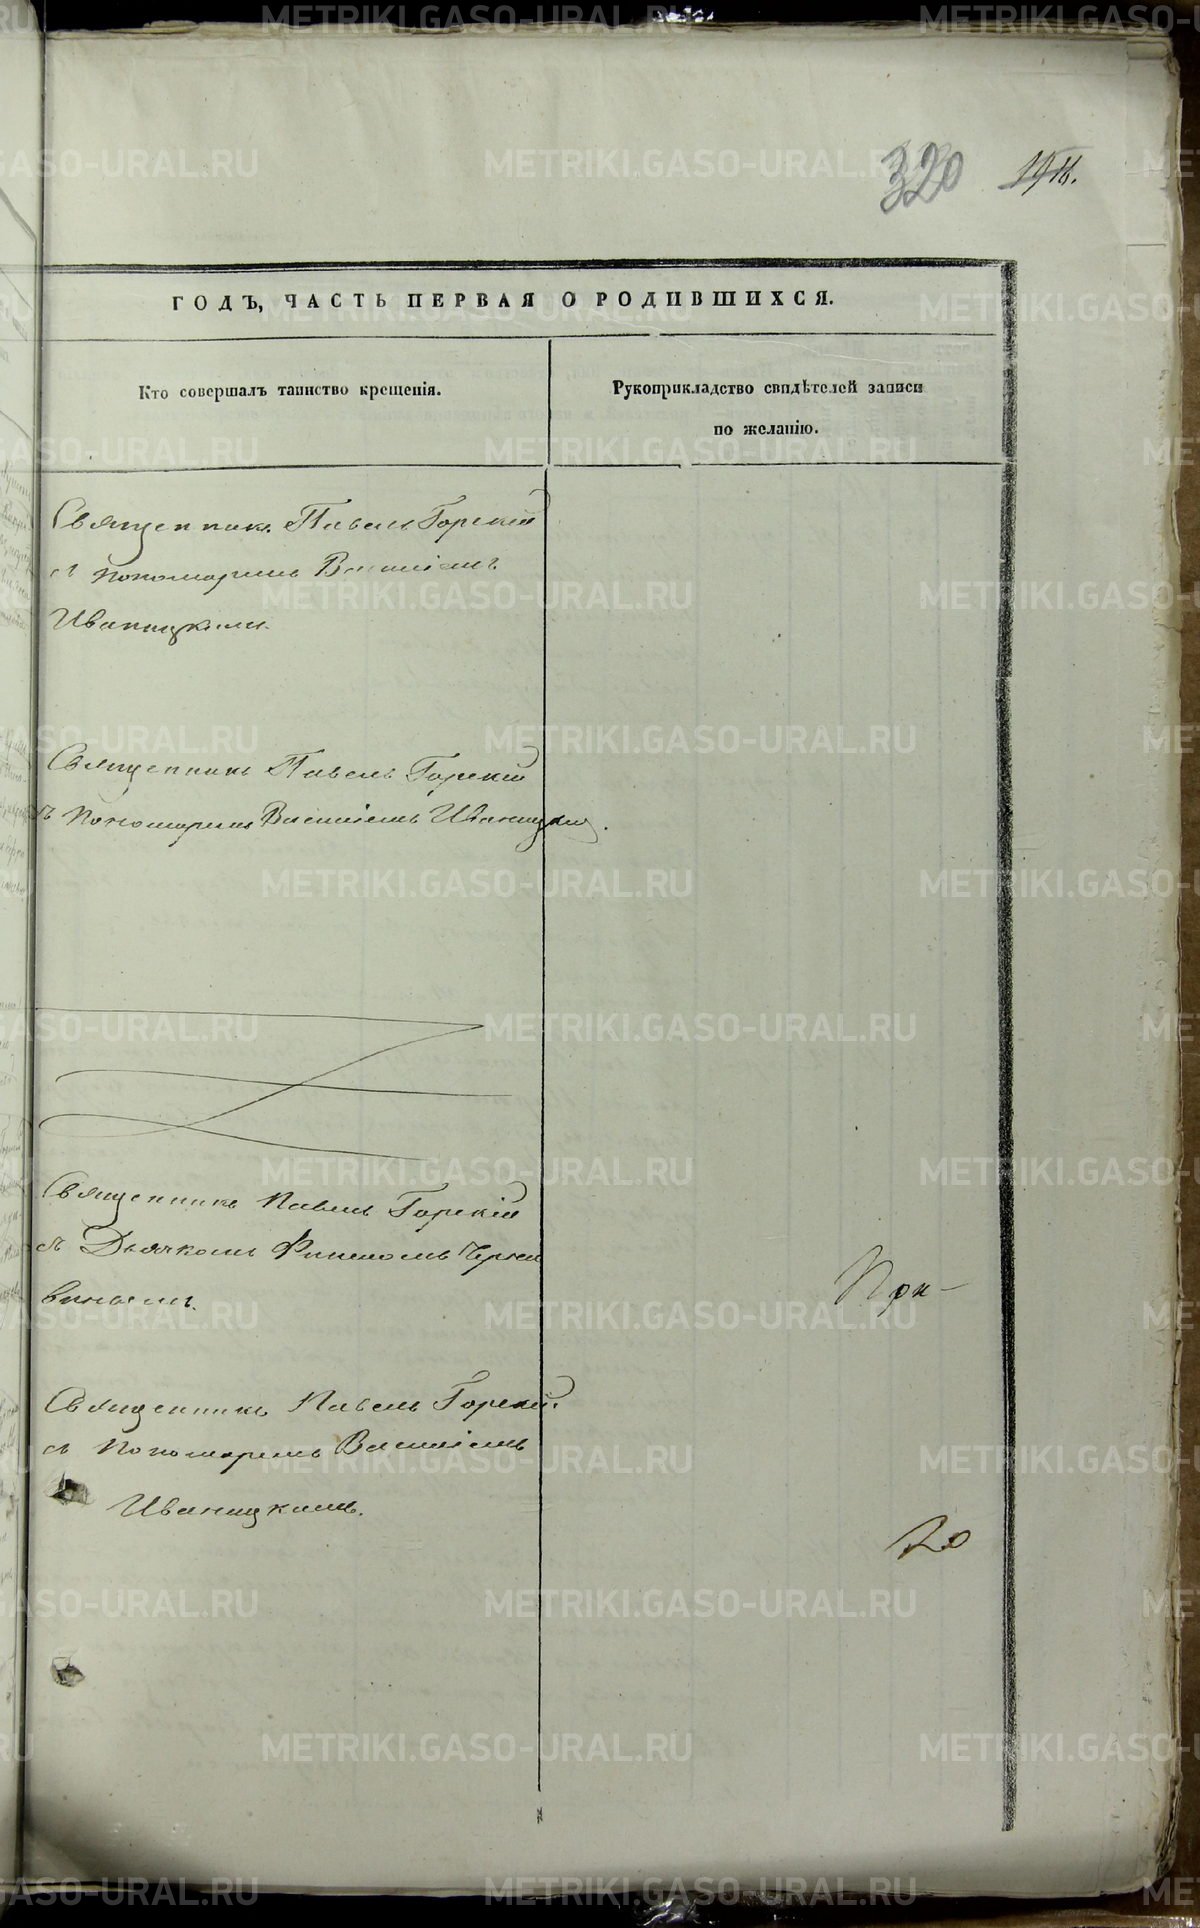 320
ГОДЪ, ЧАСТЬ ПЕРВАЯ О РОДИВШИХСЯ.
Кто совершалъ таинство крещенія.
Рукоприкладство свидѣтелей записи
по желанію.
Священникъ Павелъ Горскій
съ пономаремъ Василіемъ
Иваницкимъ.
Священникъ Павелъ Горскій
съ Пономаремъ Василіемъ Иваницким.
Священникъ Павелъ Горскій
съ Дьячкомъ
Священникъ Павелъ Горскій
съ Пономаремъ Василіемъ
Иваницкимъ.
При-
METRIKI.GASO-URAL.RU